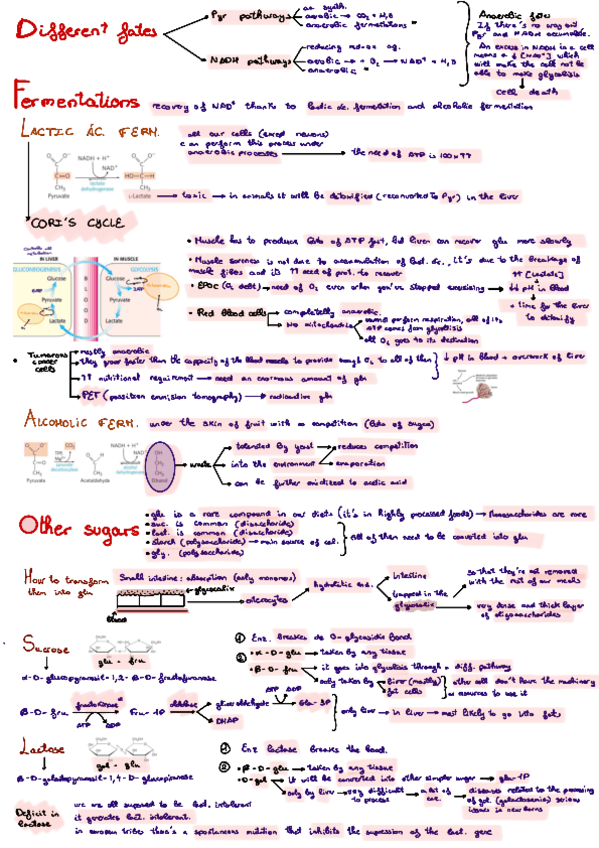 Different fates
Pyr pathways
ac. synth.
aerobic → CO₂ + H₂O
anaerobic fermentations
NADH pathways
reducing redox ag.
aerobic → + O₂ → NAD⁺ + H₂O
anaerobic
Anaerobic fates
If there's no way out
Pyr and NADH accumulate.
An excess in NADH in a cell
means a ↓[NAD⁺] which
will make the cell not be
able to make glycolisis
cell death
Fermentations
recovery of NAD⁺ thanks to lactic ac. fermentation and alcoholic fermentation
LACTIC AC. FERM.
all our cells (exced neurons)
can perform this process under
anaerobic processes → the need of ATP is 100x↑↑
Pyruvate
NADH + H⁺
NAD⁺
lactate
dehydrogenase
L-Lactate
toxic → in animals it will be detoxified (reconverted to Pyr) in the liver
CORI'S CYCLE
IN LIVER
GLUCONEOGENESIS
Glucose
Pyruvate
Lactate
BLOOD
IN MUSCLE
GLYCOLYSIS
Glucose
Pyruvate
Lactate
• Muscle has to produce lots of ATP fast, but liver can recover glu more slowly
• Muscle soreness is not due to accumulation of lact. ac., it's due to the breakage of
muscle fibers and its ↑↑ need of prot. to recover
• EPOC (O₂ debt) → need of O₂ even when you've stopped exercising
↑↑ [lactate]
↓↓ pH in blood
+ time for the liver
to detoxify
• Red blood cells
completely anaerobic.
No mitochondria
cannot perform respiration, all of its
ATP comes from glycolisis
all O₂ goes to its destination
• Tumorous cancer cells
mostly anaerobic
they grow faster than the capacity of the blood vessels to provide enough O₂ to all of them
↓ pH in blood + overwork of liver
↑↑ nutritional requirement → need an enormous amount of glu
PET (possitron emmision tomography) → radioactive glu
ALCOHOLIC FERM.
under the skin of fruit with no competition (lots of sugar)
Pyruvate
CO₂
TPP
Mg²⁺
pyruvate
decarboxylase
Acetaldehyde
NADH + H⁺
NAD⁺
alcohol
dehydrogenase
Ethanol
waste
tolerated by yeast → reduces competition
into the environment → evaporation
can be further oxidized to acetic acid
Other sugars
• glu is a rare compound in our diets (it's in highly processed foods) → Monosaccharides are rare
• suc. is common (disaccharide)
• lact. is common (disaccharide)
• starch (polysaccharide) → main source of cal.
• gly. (polysaccharide)
All of them need to be converted into glu
How to transform
them into glu
Small intestine: absorption (only monomers)
glycocalix
blood
enterocytes
hydrolitic enz.
intestine
trapped in the
glycocalix
so that they're not removed
with the rest of our meals
very dense and thick layer
of oligosaccharides
Sucrose
glu - fru
α-D-glucopyranosil-1,2-β-D-fructofuranose
① Enz. breakes de O-glycosidic bond
② • α-D-glu → taken by any tissue
• β-D-fru
it goes into glycolisis through a diff. pathway
only taken by liver (mostly)
fat cells
other cell don't have the machinery
or resources to use it
β-D-fru
fructokinase
ATP ADP
Fru-1P
aldolase
glyceraldehyde
ATP ADP
Gla-3P
DHAP
only liver → in liver → most likely to go into fats
Lactose
gal - glu
β-D-galactopyranosil-1,4-D-glucopiranose
① Enz lactase breaks the bond.
② • β-D-glu → taken by any tissue
• D-gal
It will be converted into other simpler sugar → glu-1P
only by liver → very difficult
to process
a lot of
enz.
diseases related to the processing
of gal (galactosemia) serious
issues in newborns
Deficit in
lactase
we are all supposed to be lact. intolerant
it generates lact. intolerant.
in european tribes there's a spontaneous mutation that inhibits the supression of the lact. gene